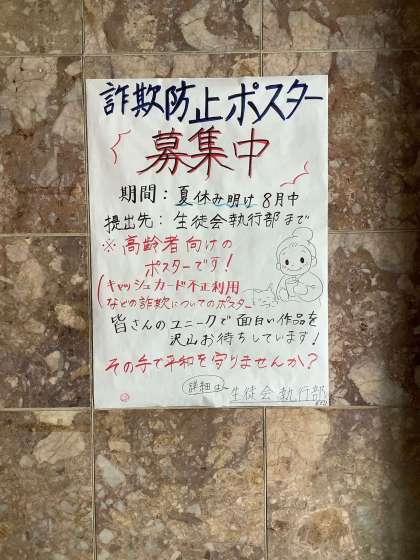 詐欺防止ポスター
募集中
期間：夏休み明け8月中
提出先：生徒会執行部まで
※高齢者向けの
ポスターです！
(キャッシュカード不正利用
などの詐欺についてのポスター
皆さんのユニークで面白い作品を
沢山お待ちしています！
その手で平和を守りませんか？
詳細は〜生徒会執行部